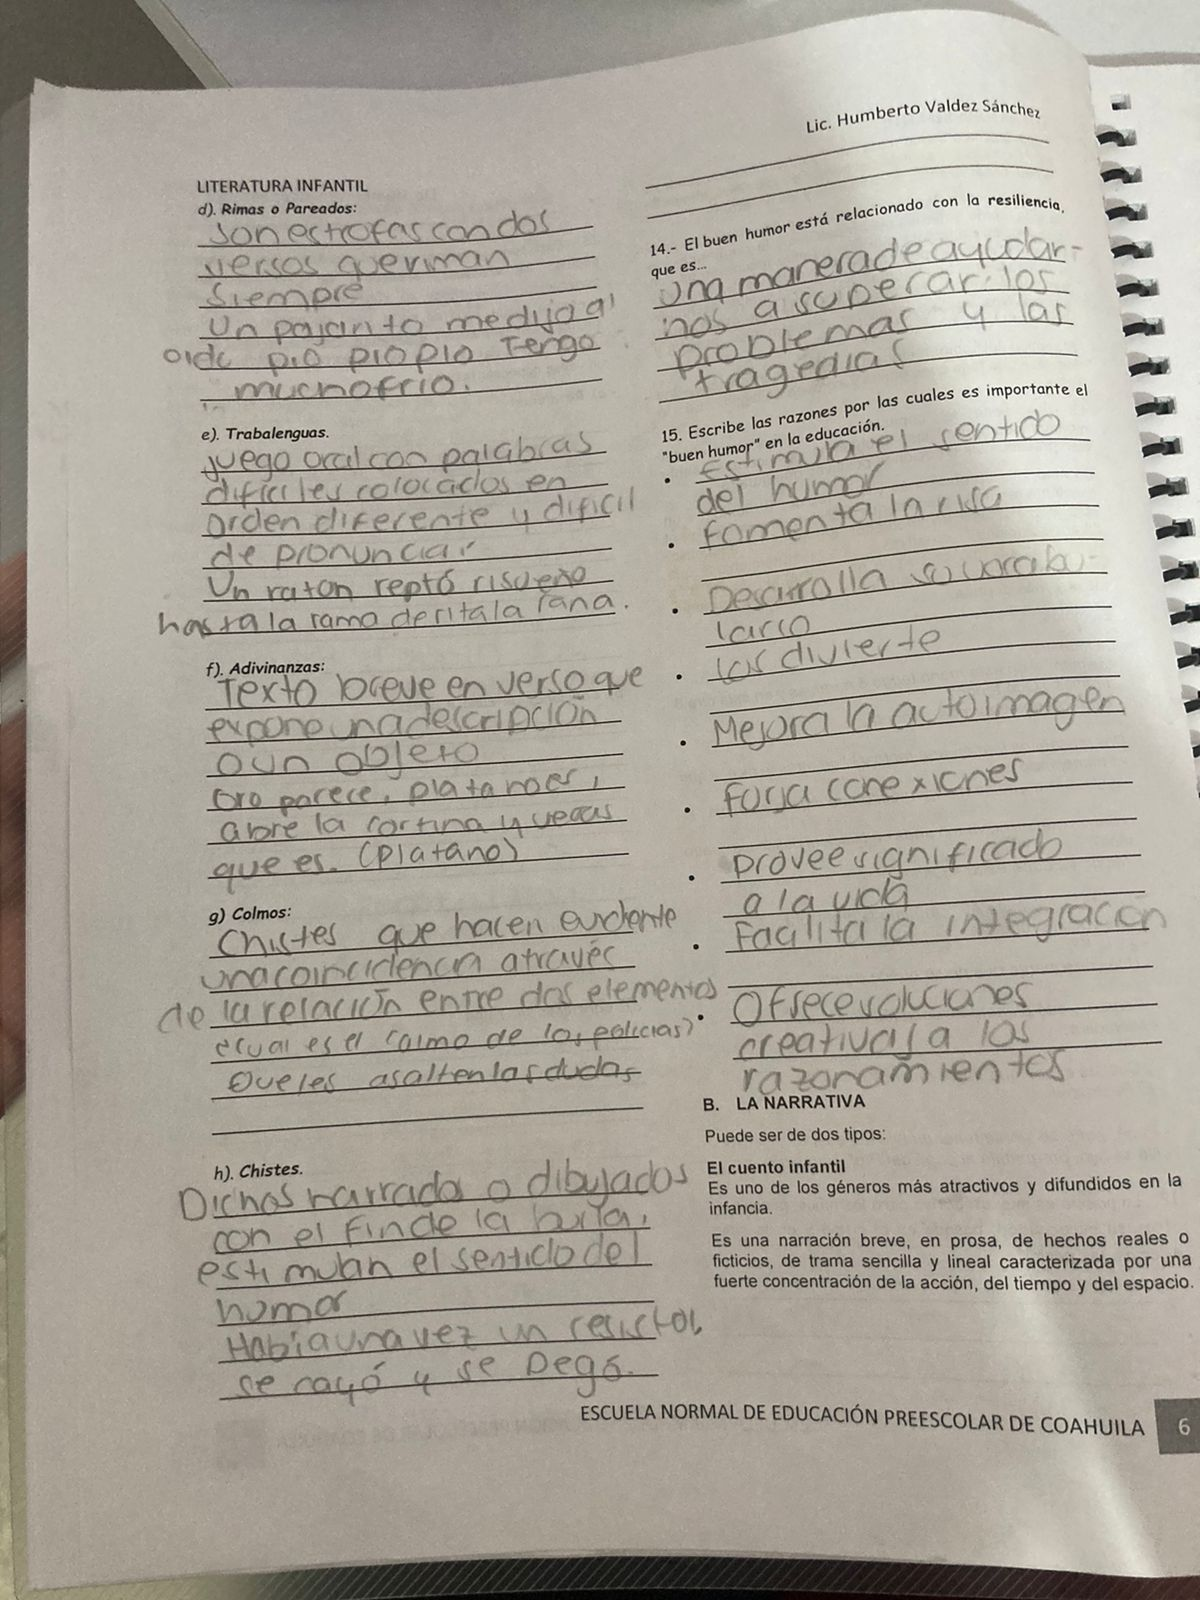 Lic. Humberto Valdez Sánchez
LITERATURA INFANTIL
d). Rimas o Pareados:
son estrofas con dos
versos que riman
siempre
Un pajarito me dijo al
oido pio pio pio Tengo
mucho frio.
e). Trabalenguas.
juego oral con palabras
difíciles colocados en
orden diferente y dificil
de pronunciar
Un raton reptó risueño
hasta la rama derita la rana.
f). Adivinanzas:
Texto breve en verso que
expone una descripción
o un objeto
oro parece, plata no es,
abre la cortina y veras
que es. (Platano)
g) Colmos:
Chistes que hacen evidente
una coincidencia através
de la relación entre dos elementos
cual es el colmo de los policias?
Que les asalten las dudas
h). Chistes.
Dichos narrados o dibujados
con el fin de la burla,
estimulan el sentido del
humor
Había una vez un resistol,
se cayó y se pegó.
14.- El buen humor está relacionado con la resiliencia,
que es...
una manera de ayudar-
nos a superar los
problemas y las
tragedias
15. Escribe las razones por las cuales es importante el
"buen humor" en la educación.
• Estimula el sentido
del humor
• fomenta la risa
• Desarrolla su vocabu-
lario
• los divierte
• Mejora la autoimagen
• forja conexiones
• provee significado
a la vida
• Facilita la integración
• Ofrece soluciones
creativas a los
razonamientos
B. LA NARRATIVA
Puede ser de dos tipos:
El cuento infantil
Es uno de los géneros más atractivos y difundidos en la
infancia.
Es una narración breve, en prosa, de hechos reales o
ficticios, de trama sencilla y lineal caracterizada por una
fuerte concentración de la acción, del tiempo y del espacio.
ESCUELA NORMAL DE EDUCACIÓN PREESCOLAR DE COAHUILA 6